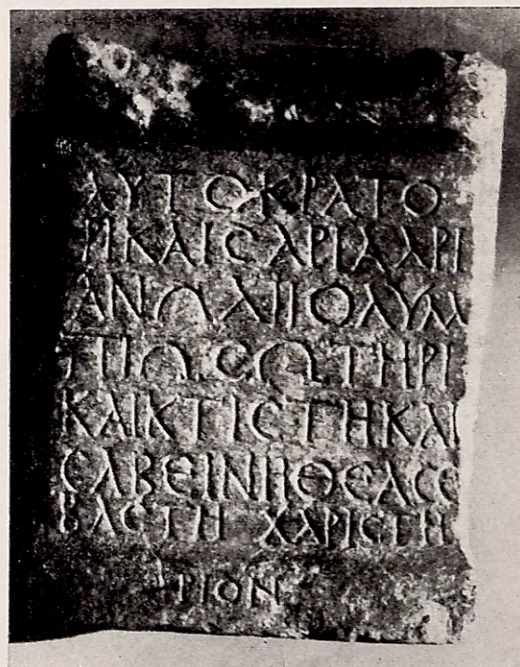 ΑΥΤΟΚΡΑΤΟ
ΡΙΚΑΙϹΑΡΙΑΔΡΙ
ΑΝΩΔΙΙΟΛΥΜ
ΠΙΩϹΩΤΗΡΙ
ΚΑΙΚΤΙϹΤΗΚΑΙ
ϹΑΒΕΙΝΗΘΕΑϹΕ
ΒΑϹΤΗ ΧΑΡΙϹΤΗ
ΡΙΟΝ